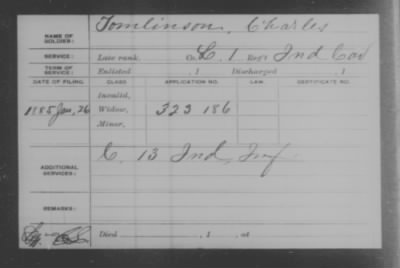 NAME OF SOLDIER: Tomlinson, Charles
SERVICE: Late rank, Co. L, 1 Reg't Ind Cav
TERM OF SERVICE: Enlisted , 1 Discharged , 1
DATE OF FILING. CLASS. APPLICATION NO. LAW. CERTIFICATE NO.
Invalid,
1885 Jan, 26 Widow, 323 186
Minor,
ADDITIONAL SERVICES: C. 13 Ind, Inf.
REMARKS:
Died , 1 , at